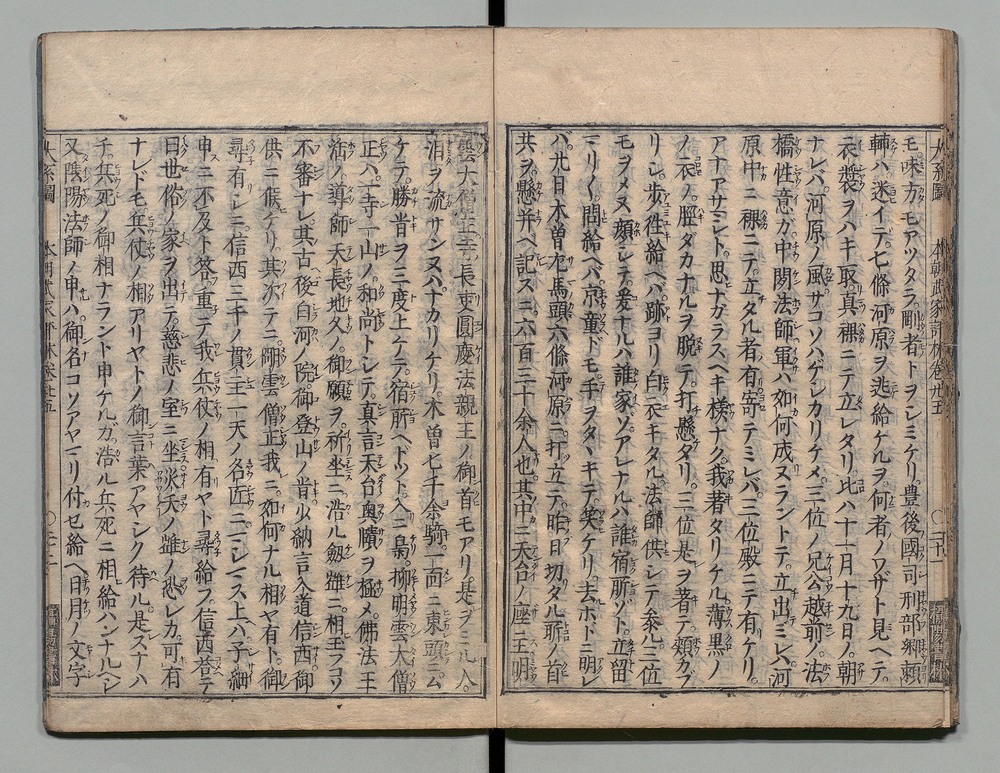 モ味方モアツタラ剛者トヲシミケリ豊後國司刑部卿頼
輔ハ迷イテ七條河原ヲ逃給ケルヲ何者ノワザト見ヘテ
衣装ヲハキ取真裸ニテ立レタリ比ハ十一月十九日ノ朝
ナレバ河原ノ風サコソハゲシカリケメ三位ノ兄公越前ノ法
橋性意カ中間法師軍ハ如何成スラントテ立出ミレバ河
原中ニ裸ニテ立タル者有寄テミレバ三位殿ニテ有ケリ
アナアサミシト思ナガラスヘキ様ナク我著タリケル薄黒ノ
ノ衣ノ脛タカナルヲ脱テ打懸タリ三位是ヲ着テ頬カブ
リシ歩徃給ヘバ跡ヨリ白衣キタル法師供シテ参ル三位
モヲメヌ顔シテ爰ナルハ誰家ソアレナルハ誰宿所ゾト立留
ミリく問給ヘバ京童ドモ手ヲタヽキテ笑ケリ去ホトニ明レ
バ廿日木曽左馬頭六條河原ニ打立テ昨日切タル所ノ首
共ヲ懸并ヘ記スニ六百三十余人也其中ニ天台ノ座主明
雲大僧正寺長吏圓慶法親王ノ御首モアリ是ヲミル人
泪ヲ流サンヌハナカリケリ木曽七千余騎一面ニ東頭ニム
ケテ勝時ヲ三度上ケテ宿所ヘドット入ニ梟抑明雲大僧
正ハ一寺一山ノ和尚トシテ真言天台奥賾ヲ極メ佛法王
法ノ導師天長地久ノ御願ヲ祈坐ニ浩ル劔難ニ相玉フコソ
不審ナレ其古後白河ノ院御登山ノ時少納言入道信西御
供ニ候ケリ其次テニ明雲僧正我ニ如何ナル相ヤ有ト御
尋有シニ信西三千ノ貫主一天ノ名匠ニミシレス上ハ子細
申ニ不及ト答重テ我兵仗ノ相有ヤト尋給フ信西答テ
曰世俗ノ家ヲ出テ慈悲ノ室ニ坐災夭ノ難ノ恐レカ可有
ナレドモ兵仗ノ相アリヤトノ御言葉アヤシク待ル是スナハ
チ兵死ノ御相ナラント申ケルガ浩ル兵死ニ相給ハンナルヘシ
又陰陽法師ノ申ハ御名コソアヤミリ付セ給ヘ日月ノ文字